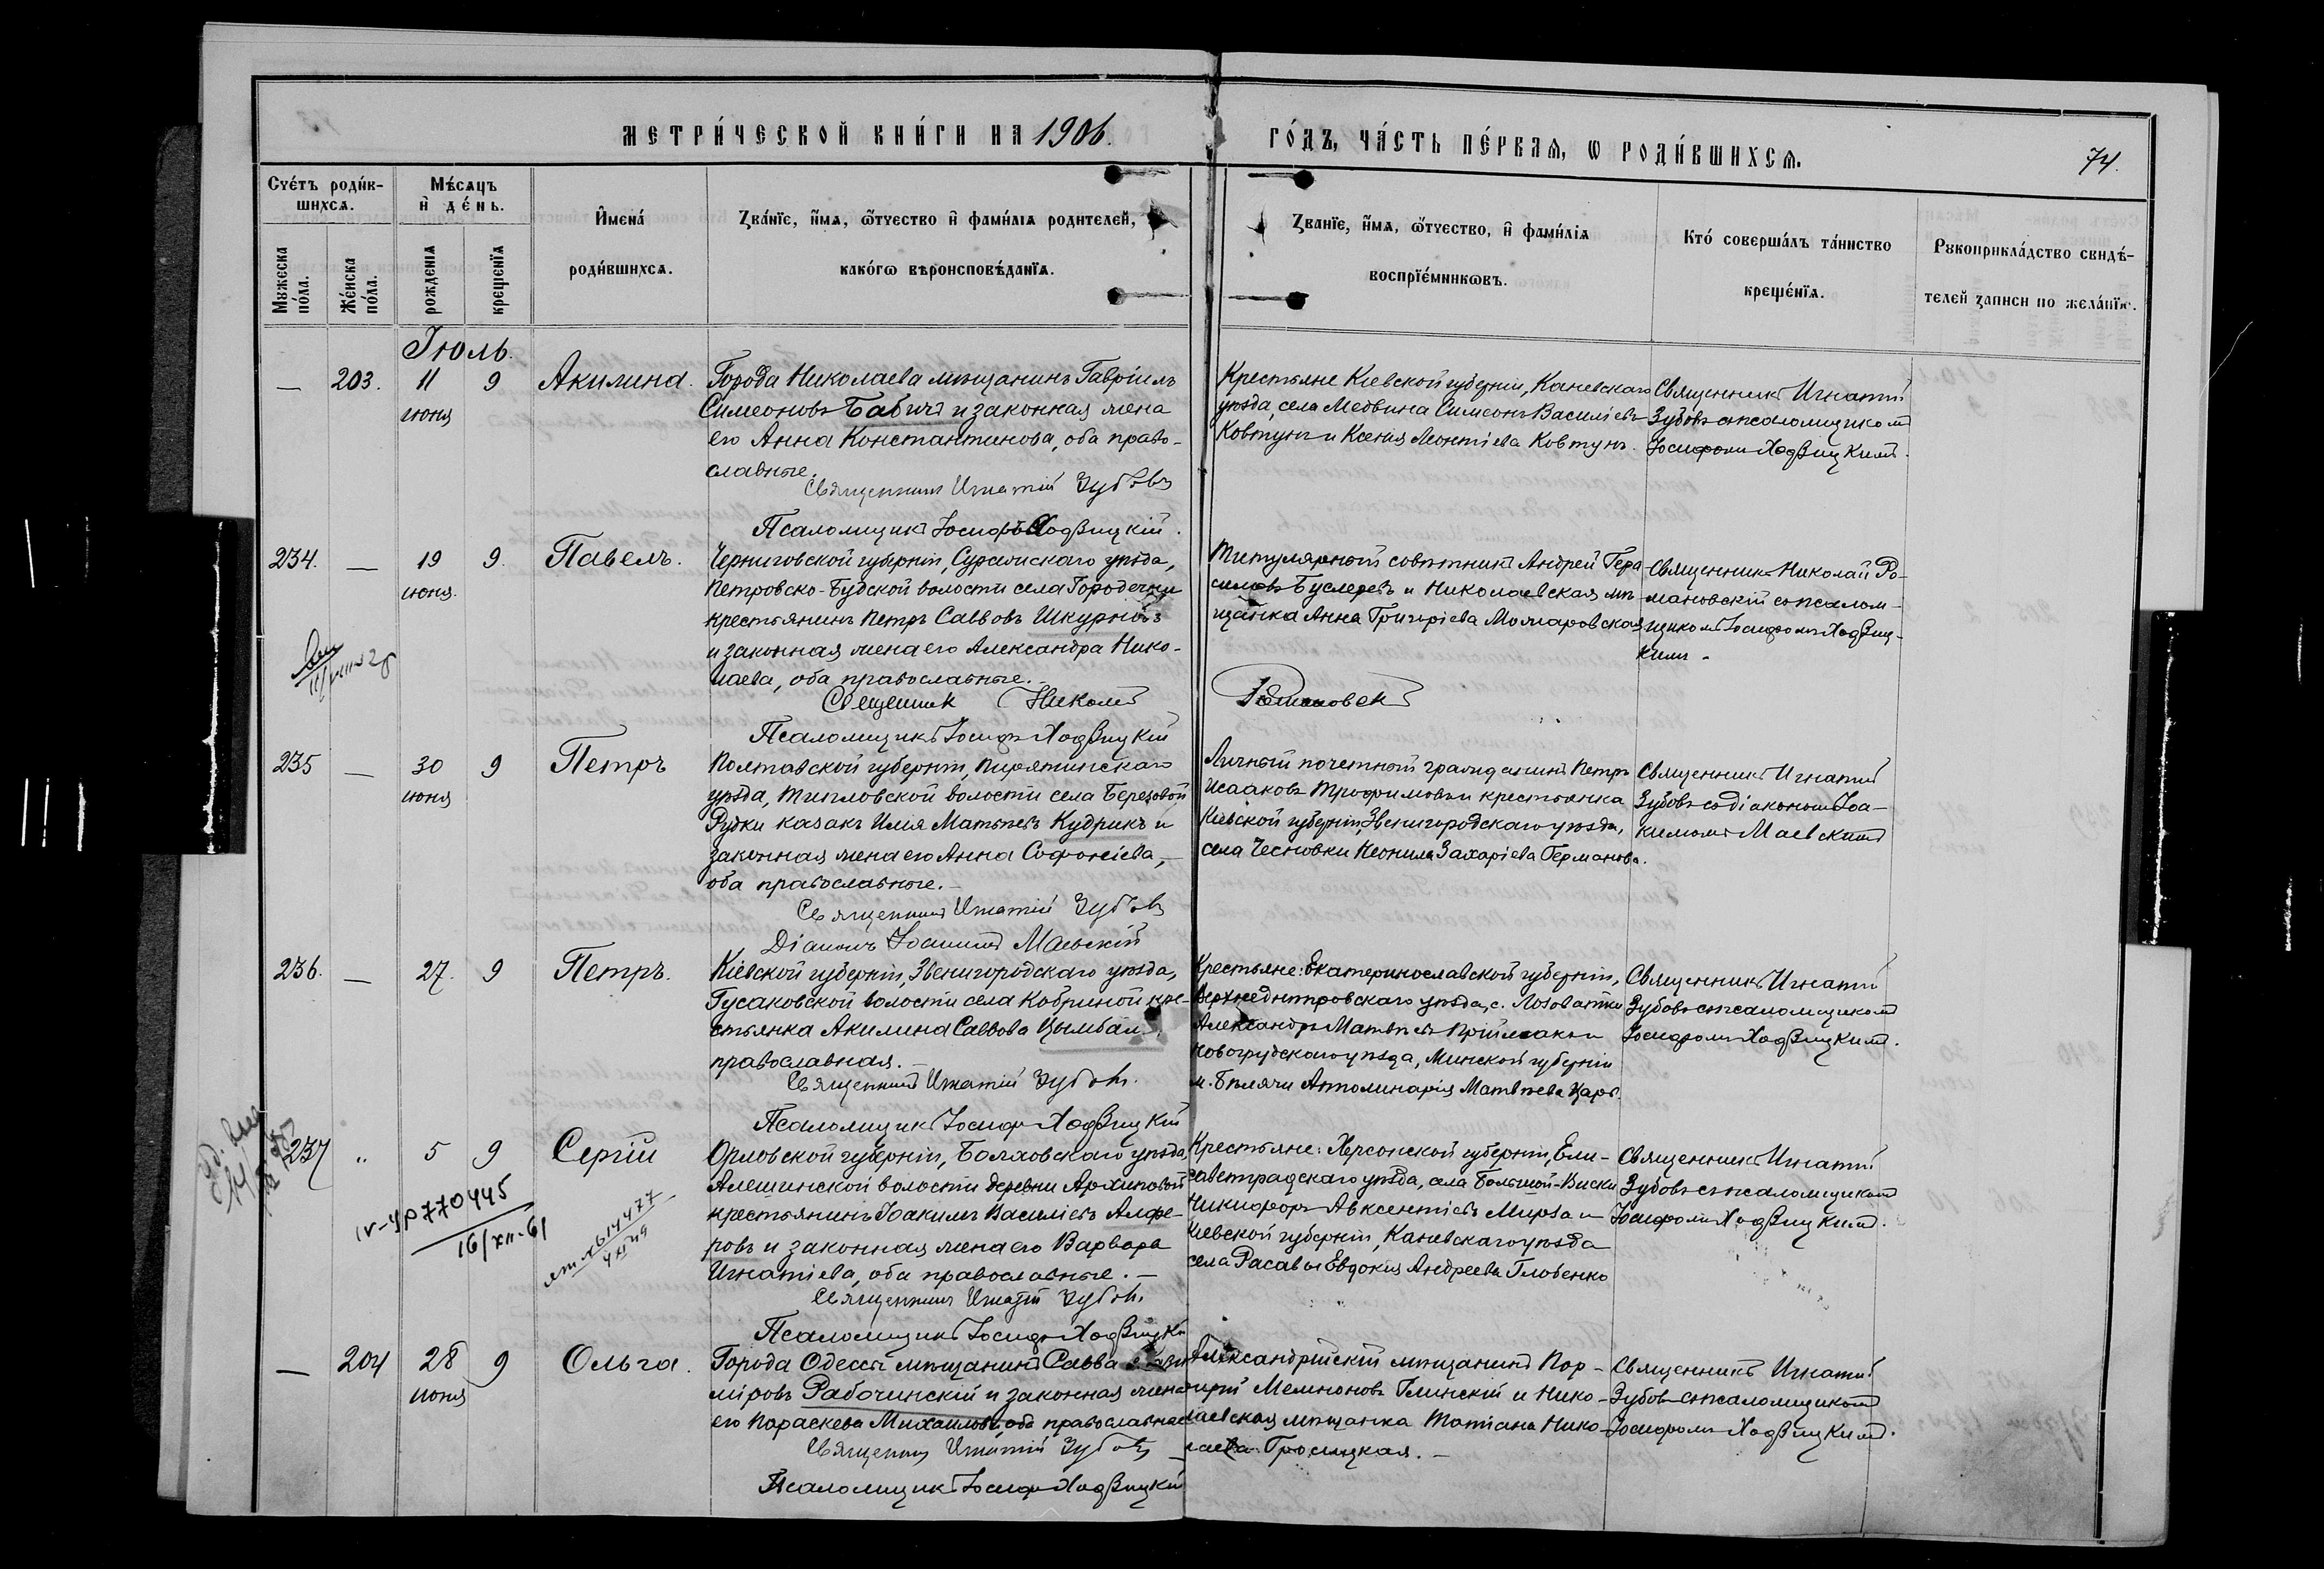 МЕТРИ́ЧЕСКОЙ КНИ́ГИ НА 1906.
ГО́ДЪ, ЧА́СТЬ ПЕ́РВАЯ, Ѡ РОДИ́ВШИХСѦ.
74.
Счетъ роди́в-
шихсѧ.
Мѣ́сѧцъ
и҆ де́нь.
И҆мена́
роди́вшихсѧ.
Зва́нїе, и҆́мѧ, ѻ҆́тчество и҆ фами́лїѧ родителей,
како́гѡ вѣроисповѣ́данїѧ.
Зва́нїе, и҆́мѧ, ѻ҆́тчество, и҆ фами́лїѧ
воспрїе́мникѡвъ.
Кто́ соверша́лъ та́инство
креще́нїѧ.
Рꙋкоприкла́дство свидѣ́-
телей записи по жела́нїю.
Мꙋжеска
по́ла.
Же́нска
по́ла.
рожденїѧ
крещенїѧ
Іюль.
— 203. 11 9 Акилина.
июня
Города Николаева мѣщанинъ Гавріилъ
Симеоновъ Бабичъ и законная жена
его Анна Константинова, оба право-
славные.
Священникъ Игнатій Зубовъ
Псаломщикъ Іосифъ Ходзицкій.
Крестьяне Кіевской губерніи, Каневскаго
уѣзда, села Медвина Симеонъ Василіевъ
Ковтунъ и Ксенія Леонтіева Ковтунъ.
Священникъ Игнатій
Зубовъ съ псаломщикомъ
Іосифомъ Ходзицкимъ.
234. — 19 9. Павелъ.
июня.
Черниговской губерніи, Суражскаго уѣзда,
Петровско-Будской волости села Городечни
крестьянинъ Петръ Саввовъ
и законная жена его Александра Нико-
лаева, оба православные.
Священник Николай
Романовск
Псаломщикъ Іосифъ Ходзицкій
Титулярный совѣтникъ Андрей Гера-
симовъ и Николаевская мѣ-
щанка Анна Григоріева
Священникъ Николай Ро-
мановскій съ псалом-
щикомъ Іосифомъ Ходзиц-
кимъ.
235 — 30 9 Петръ
июня
Полтавской губерніи, Пирятинскаго
уѣзда, волости села Березовой
Рудки казакъ Илія Матвѣевъ Кудрикъ и
законная жена его Анна Софоніева, —
оба православные. —
Священникъ Игнатій Зубовъ
Діаконъ Іоакимъ Маевскій
Личный почетный гражданинъ Петръ
Исааковъ Трофимовъ и крестьянка
Кіевской губерніи, Звенигородскаго уѣзда,
села Чесновки Неонила Захаріева Германова.
Священникъ Игнатій
Зубовъ съ діакономъ Іоа-
кимомъ Маевскимъ
236. — 27. 9 Петръ.
Кіевской губерніи, Звенигородскаго уѣзда,
Гусаковской волости села Кобриной кре-
стьянка Акилина Саввова Цымбал
православная. —
Священникъ Игнатій Зубовъ.
Псаломщикъ Іосифъ Ходзицкій
Крестьяне: Екатеринославской губерніи,
Верхнеднѣпровскаго уѣзда, с. Лозоватки
Александръ Матвѣевъ Прійма и
Новогрудскаго уѣзда, Минской губерніи
м. Аполинарія Матвѣева
Священникъ Игнатій
Зубовъ съ псаломщикомъ
Іосифомъ Ходзицкимъ.
237 „ 5 9 Сергій
IV-ЧР 770445
16/XII-61
614477
Орловской губерніи, Болховскаго уѣзда,
Алешинской волости деревни Архиповой
крестьянинъ Іоакимъ Василіевъ Алфе-
ровъ и законная жена его Варвара
Игнатіева, оба православные. —
Священникъ Игнатій Зубовъ.
Псаломщикъ Іосифъ Ходзицкій
Крестьяне: Херсонской губерніи, Ели-
саветградскаго уѣзда, села Большой-Виски
Никифоръ Авксентіевъ Мирза и
Кіевской губерніи, Каневскаго уѣзда
села Расавы Евдокія Андреева Гловенко
Священникъ Игнатій
Зубовъ съ псаломщикомъ
Іосифомъ Ходзицкимъ.
— 204 28 9 Ольга.
июня
Города Одессы мѣщанинъ Савва
міровъ Рабочинскій и законная жена
его Параскева Михаилова, оба православные
Священникъ Игнатій Зубовъ
Псаломщикъ Іосифъ Ходзицкій
Александрійскій мѣщанинъ Пор-
фирій Глинскій и Нико-
лаевская мѣщанка Татіана Нико-
лаева Гросицкая. —
Священникъ Игнатій
Зубовъ съ псаломщикомъ
Іосифомъ Ходзицкимъ.